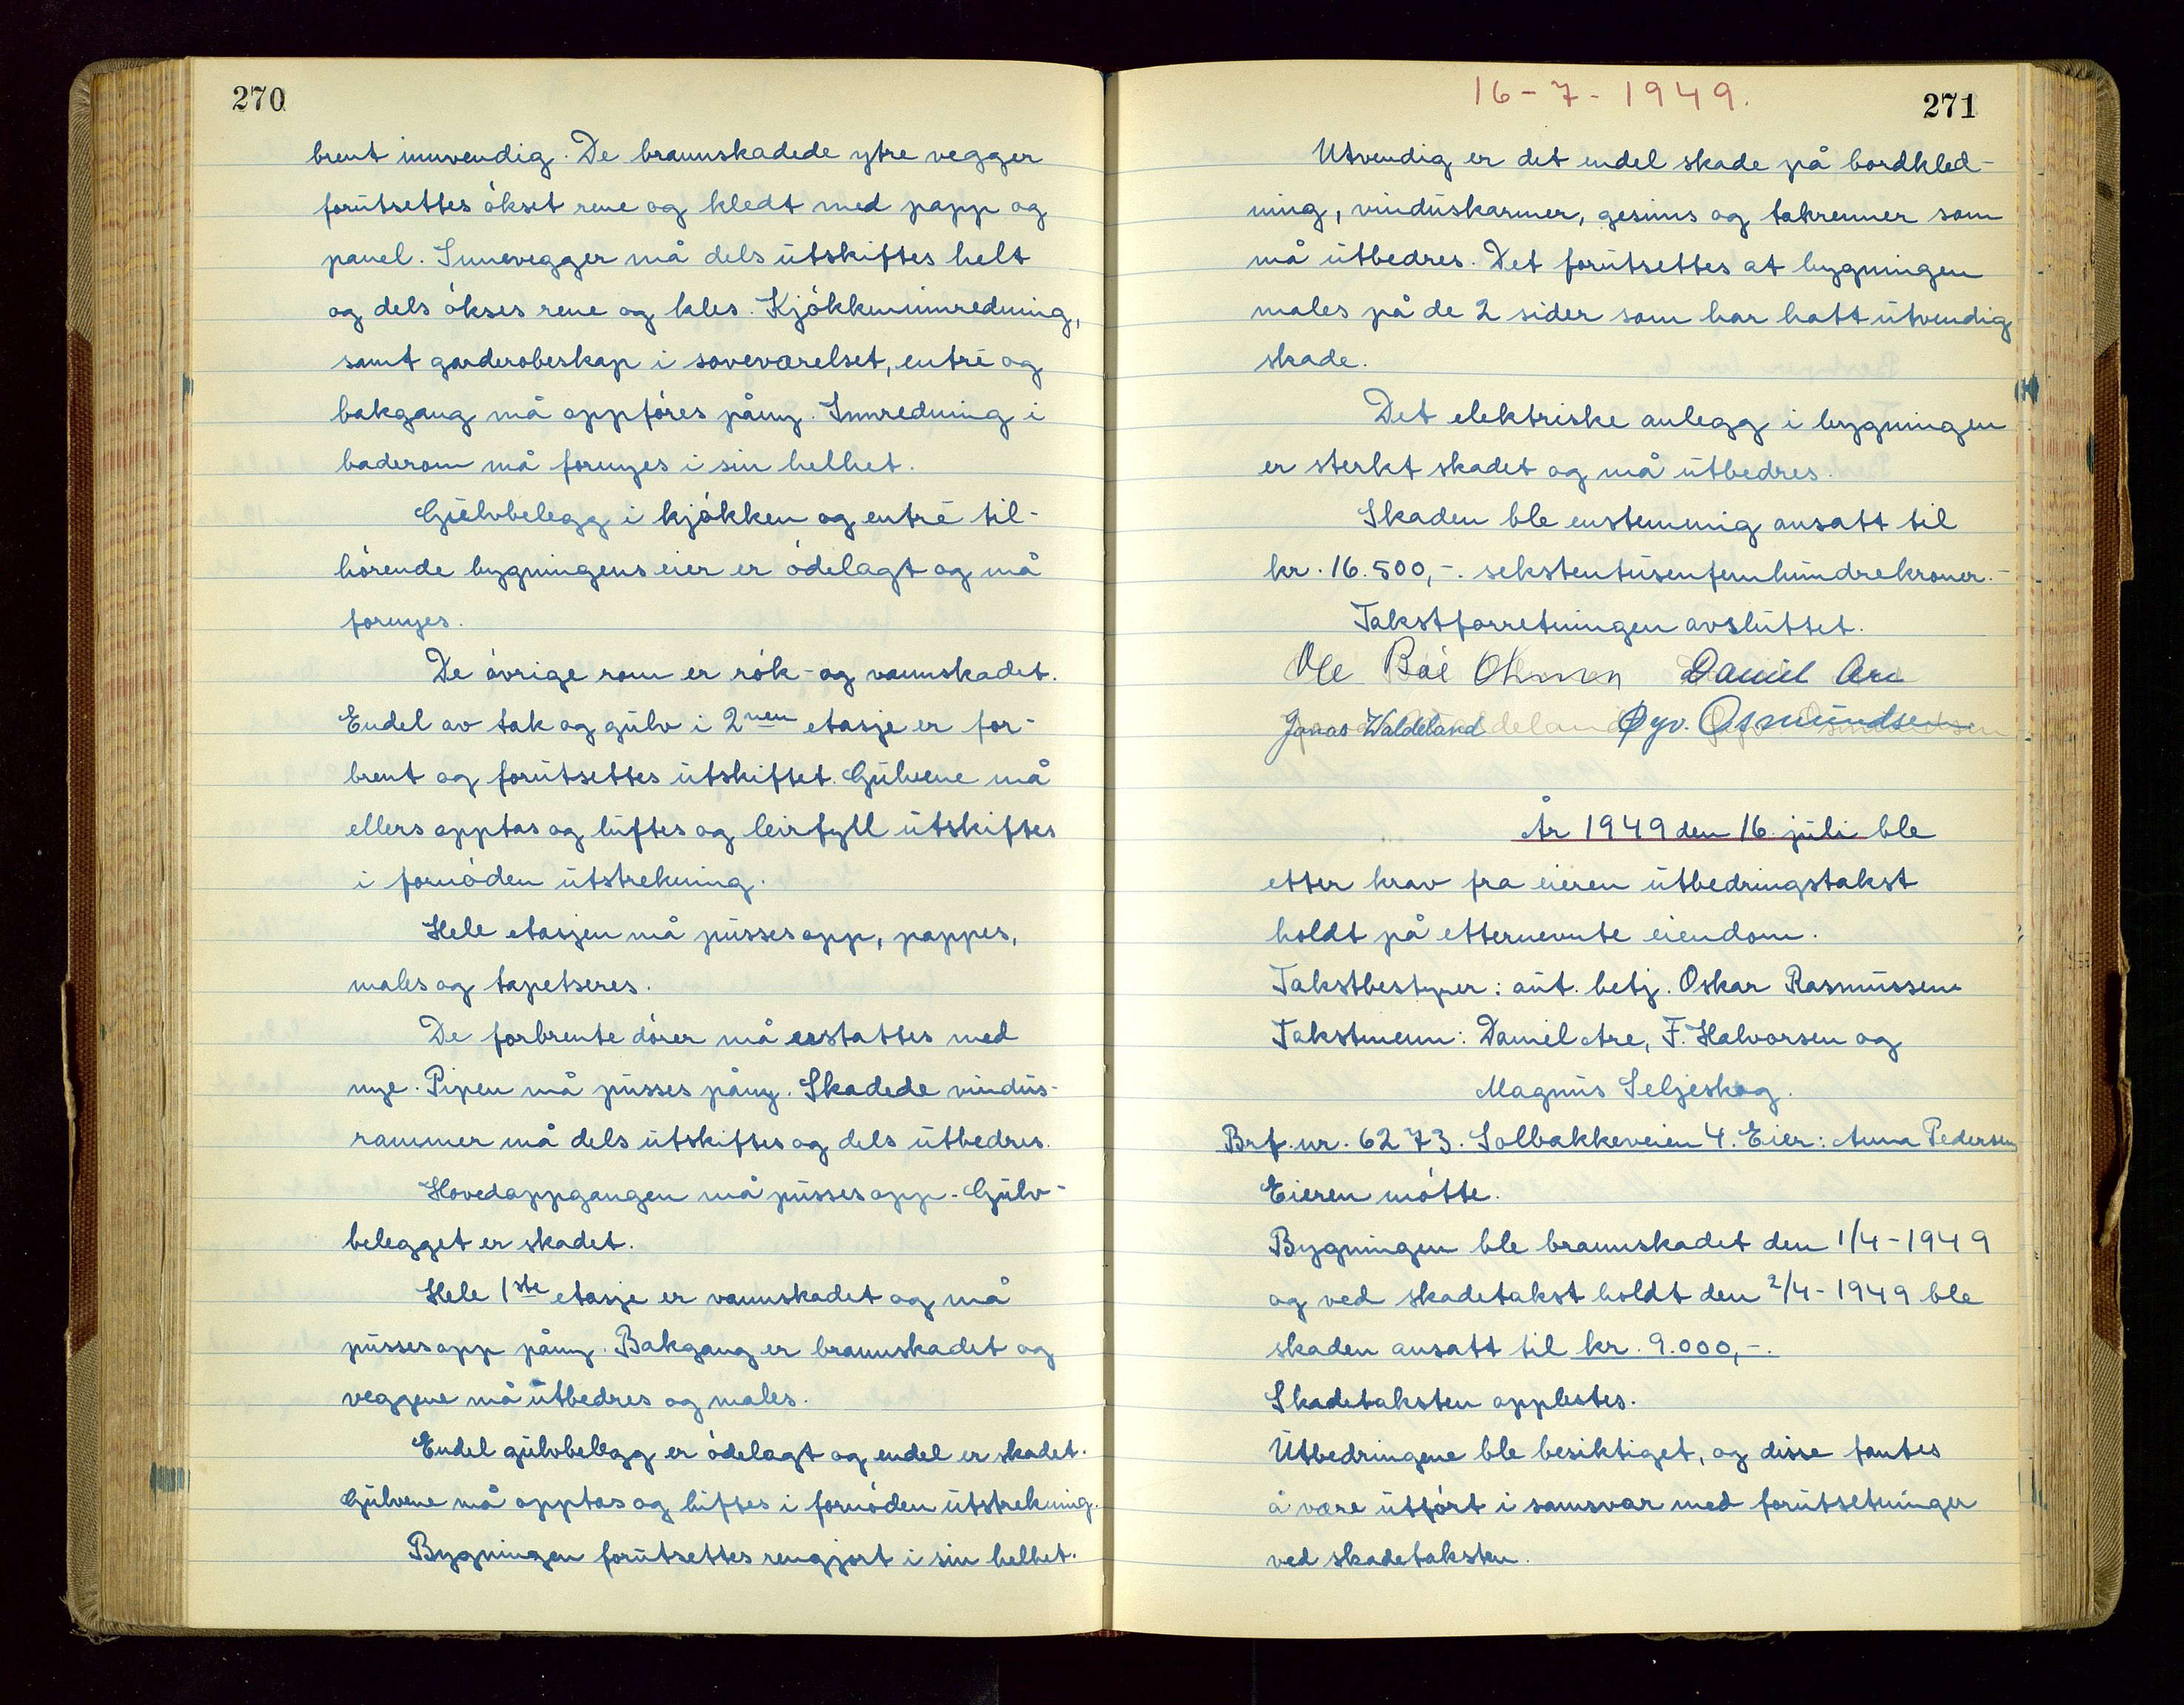 270
brent innvendig. De brannskadede ytre vegger
forutsettes økset rene og kledt med papp og
panel. Innevegger må dels utskiftes helt
og dels økses rene og kles. Kjøkkeninnredning,
samt garderobeskap i soveværelset, entré og
bakgang må oppføres påny. Innredning i
baderom må fornyes i sin helhet.
Gulvbelegg i kjøkken og entré til-
hørende bygningens eier er ødelagt og må
fornyes.
De øvrige rom er røk- og vannskadet.
Endel av tak og gulv i 2nen etasje er for-
brent og forutsettes utskiftet. Gulvene må
ellers opptas og luftes og leirfyll utskiftes
i fornøden utstrekning.
Hele etasjen må pusses opp, pappes,
males og tapetseres.
De forbrente dører må erstattes med
nye. Pipen må pusses påny. Skadede vindus-
rammer må dels utskiftes og dels utbedres.
Hovedoppgangen må pusses opp. Gulv-
belegget er skadet.
Hele 1ste etasje er vannskadet og må
pusses opp påny. Bakgang er brannskadet og
veggene må utbedres og males.
Endel gulvbelegg er ødelagt og endel er skadet.
Gulvene må opptas og luftes i fornøden utstrekning.
Bygningen forutsettes rengjort i sin helhet.
16-7-1949.
271
Utvendig er det endel skade på bordkled-
ning, vinduskarmer, gesims og takrenner som
må utbedres. Det forutsettes at bygningen
males på de 2 sider som har hatt utvendig
skade.
Det elektriske anlegg i bygningen
er sterkt skadet og må utbedres.
Skaden ble enstemmig ansatt til
kr. 16.500,-. sekstentusenfemhundrekroner.-
Takstforretningen avsluttet.
Ole Boi Daniel Are
Jonas Waldeland Øyv. Osmundsen
År 1949 den 16. juli ble
etter krav fra eieren utbedringstakst
holdt på etternevnte eiendom.
Takstbestyrer: aut. betj. Oskar Rasmussen
Takstmenn: Daniel Are, F. Halvorsen og
Magnus Seljeskog.
Brf. nr. 6273. Solbakkeveien 4. Eier: Anna Pedersen
Eieren møtte.
Bygningen ble brannskadet den 1/4-1949
og ved skadetakst holdt den 2/4-1949 ble
skaden ansatt til kr. 9.000,-.
Skadetaksten opplestes.
Utbedringene ble besiktiget, og disse fantes
å være utført i samsvar med forutsetninger
ved skadetaksten.